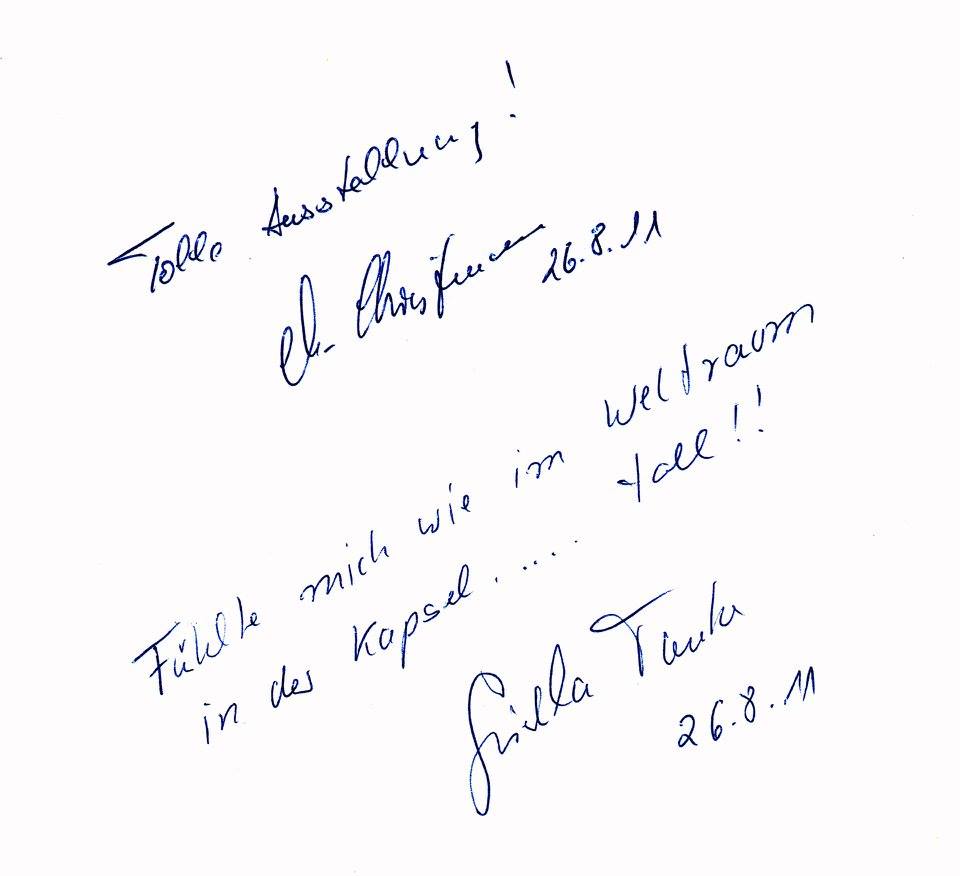 Tolle Ausstellung!
26.8.11
Fühlte mich wie im Weltraum
in der Kapsel..... toll!!
Gisella
26.8.11